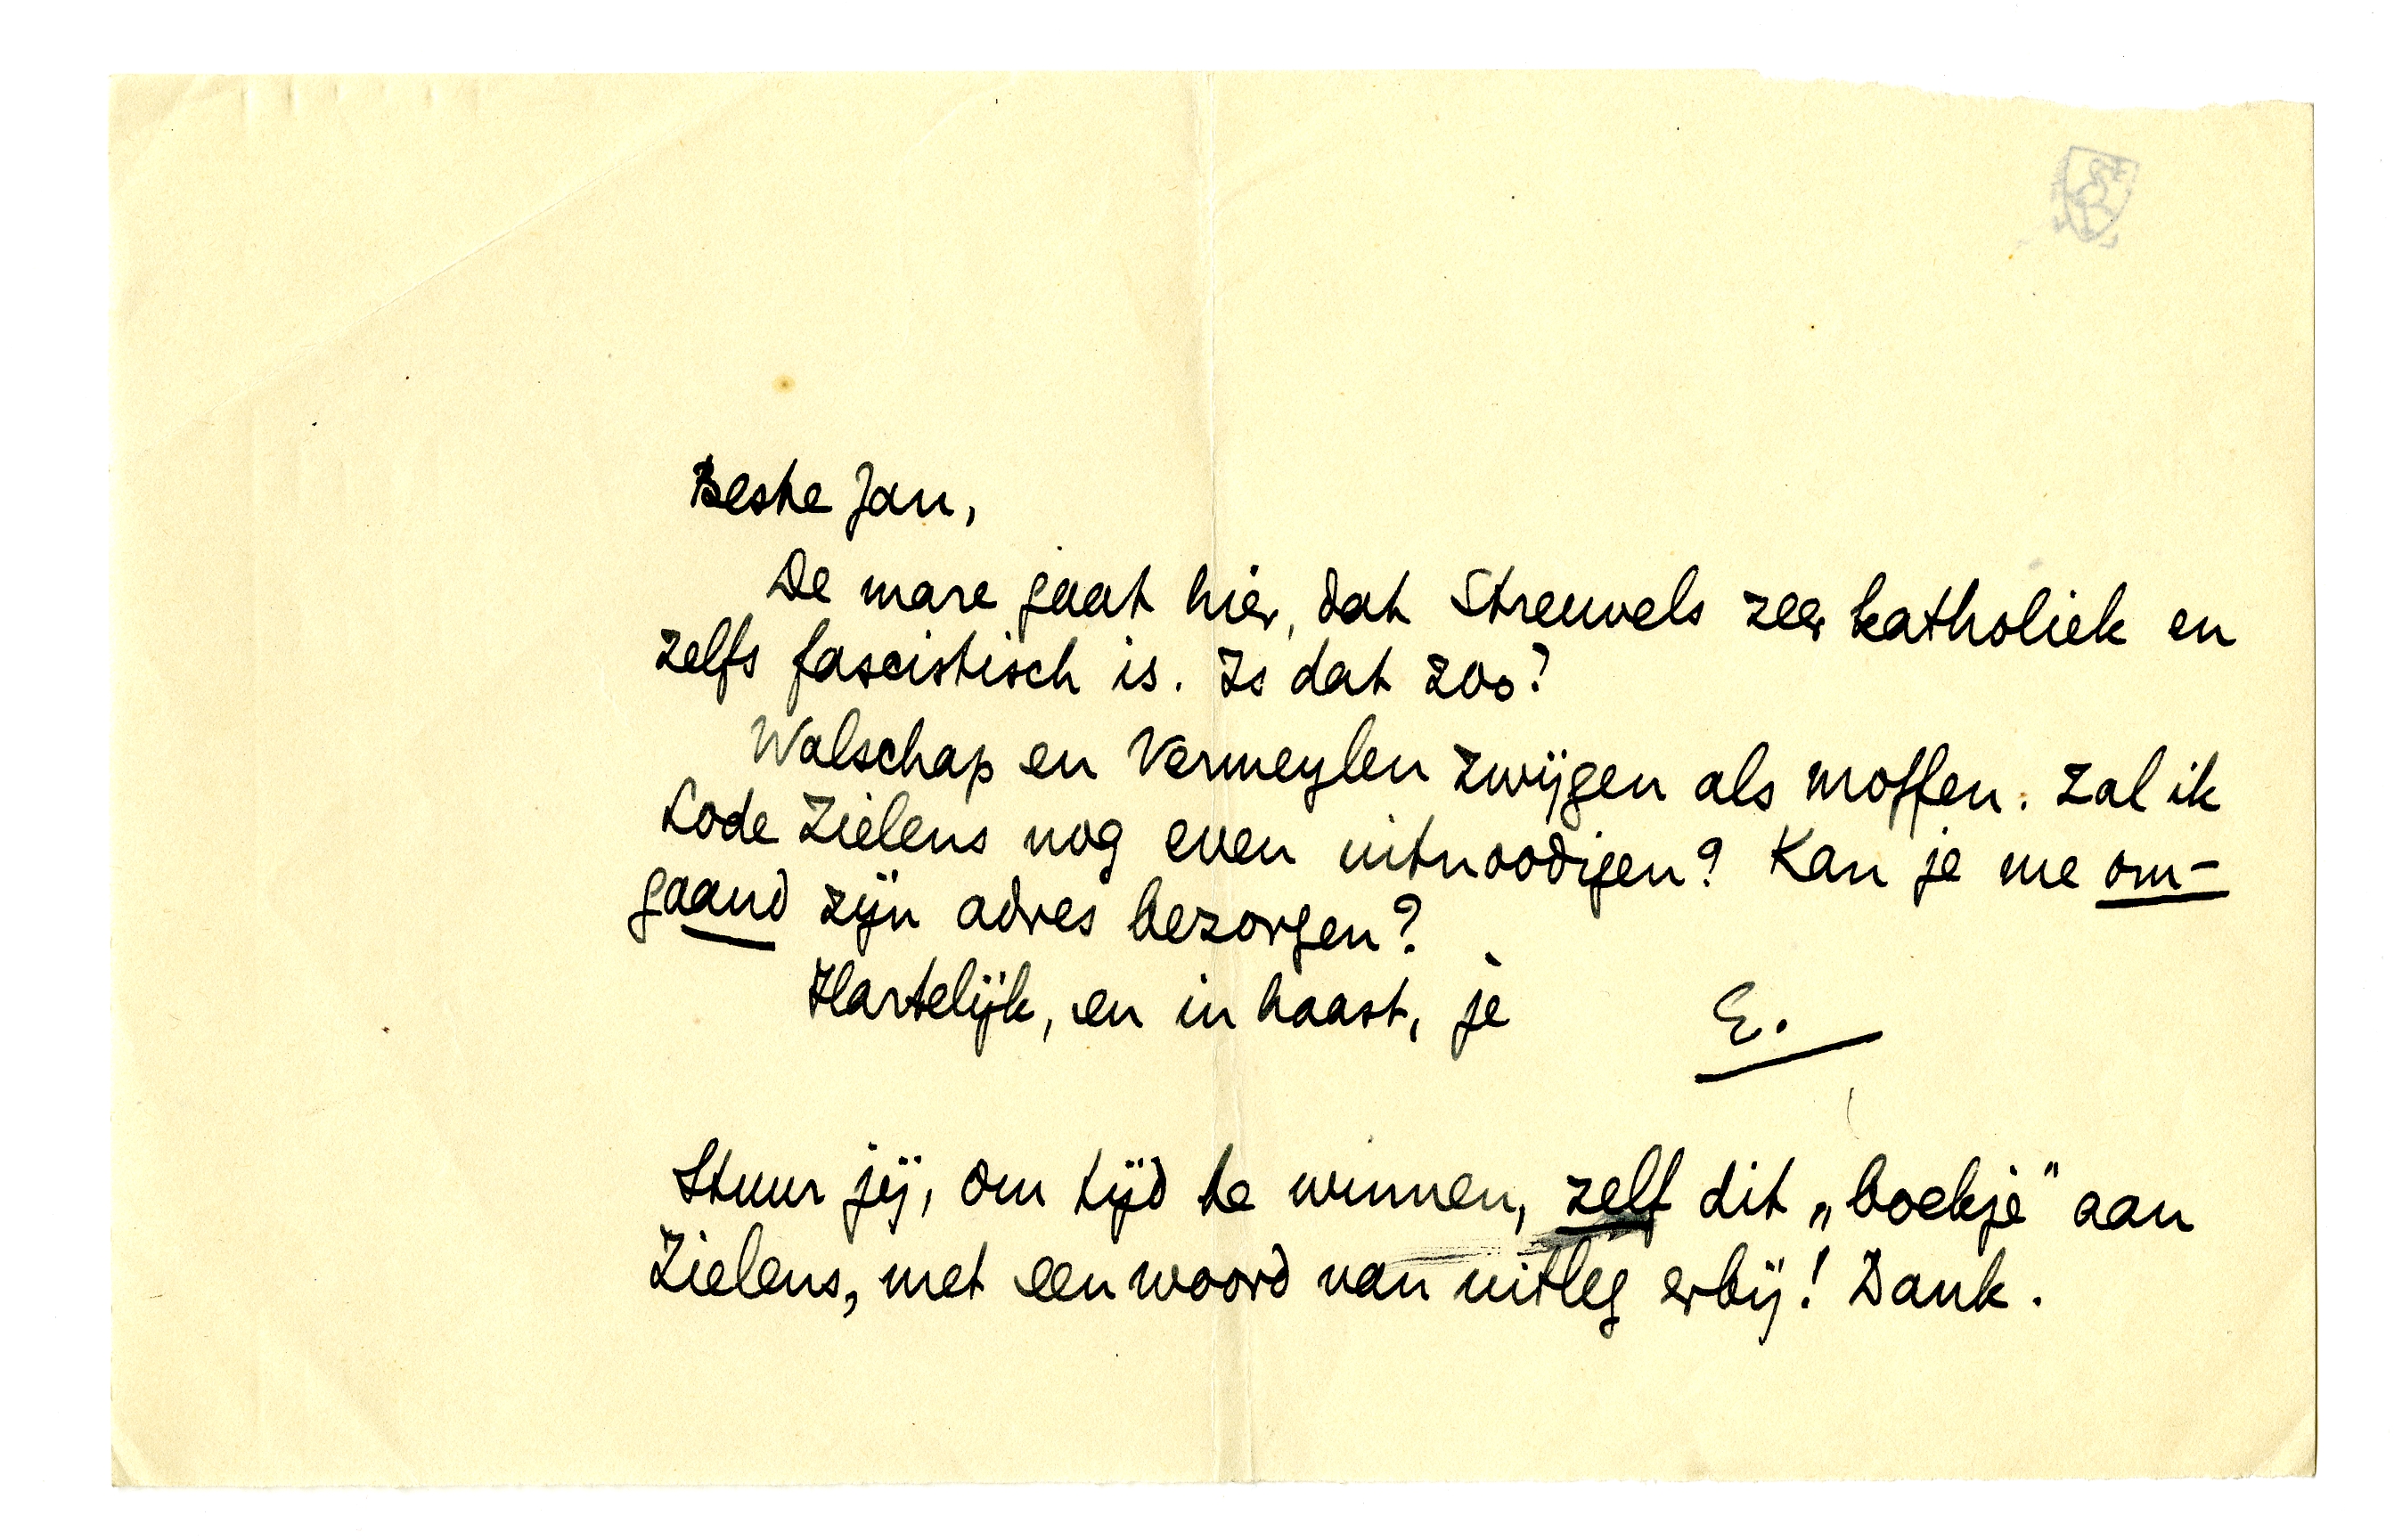 Beste Jan,
De mare gaat hier, dat Streuvels zeer katholiek en
zelfs fascistisch is. Is dat zoo?
Walschap en Vermeylen zwijgen als moffen. Zal ik
Lode Zielens nog even uitnoodigen? Kan je me om-
gaand zijn adres bezorgen?
Hartelijk, en in haast, je E.
Stuur jij, om tijd te winnen, zelf dit „boekje" aan
Zielens, met een woord van uitleg erbij! Dank.